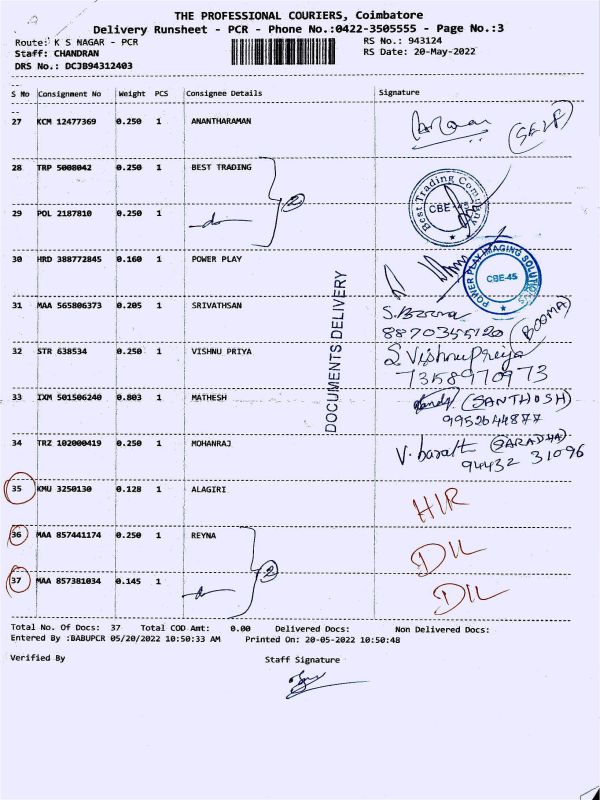 THE PROFESSIONAL COURIERS, Coimbatore
Delivery Runsheet - PCR - Phone No.:0422-3505555 - Page No.:3
Route: K S NAGAR - PCR RS No.: 943124
Staff: CHANDRAN RS Date: 20-May-2022
DRS No.: DCJB94312403
S No Consignment No Weight PCS Consignee Details Signature
27 KCM 12477369 0.250 1 ANANTHARAMAN (SELF)
28 TRP 5008042 0.250 1 BEST TRADING
2
Best Trading Company
CBE-45
29 POL 2187810 0.250 1 -do-
30 HRD 388772845 0.160 1 POWER PLAY
POWER PLAY IMAGING SOLUTIONS
CBE-45
DOCUMENTS DELIVERY
31 MAA 565806373 0.205 1 SRIVATHSAN S.Booma
8870355120 (BOOMA)
32 STR 638534 0.250 1 VISHNU PRIYA S VishnuPriya
7358970973
33 IXM 501506240 0.803 1 MATHESH (SANTHOSH)
9952644877
34 TRZ 102000419 0.250 1 MOHANRAJ V. barath (SARADHA)
94432 31096
35 KMU 3250130 0.128 1 ALAGIRI HIR
36 MAA 857441174 0.250 1 REYNA DIL
2
37 MAA 857381034 0.145 1 -do- DIL
Total No. Of Docs: 37 Total COD Amt: 0.00 Delivered Docs: Non Delivered Docs:
Entered By :BABUPCR 05/20/2022 10:50:33 AM Printed On: 20-05-2022 10:50:48
Verified By Staff Signature